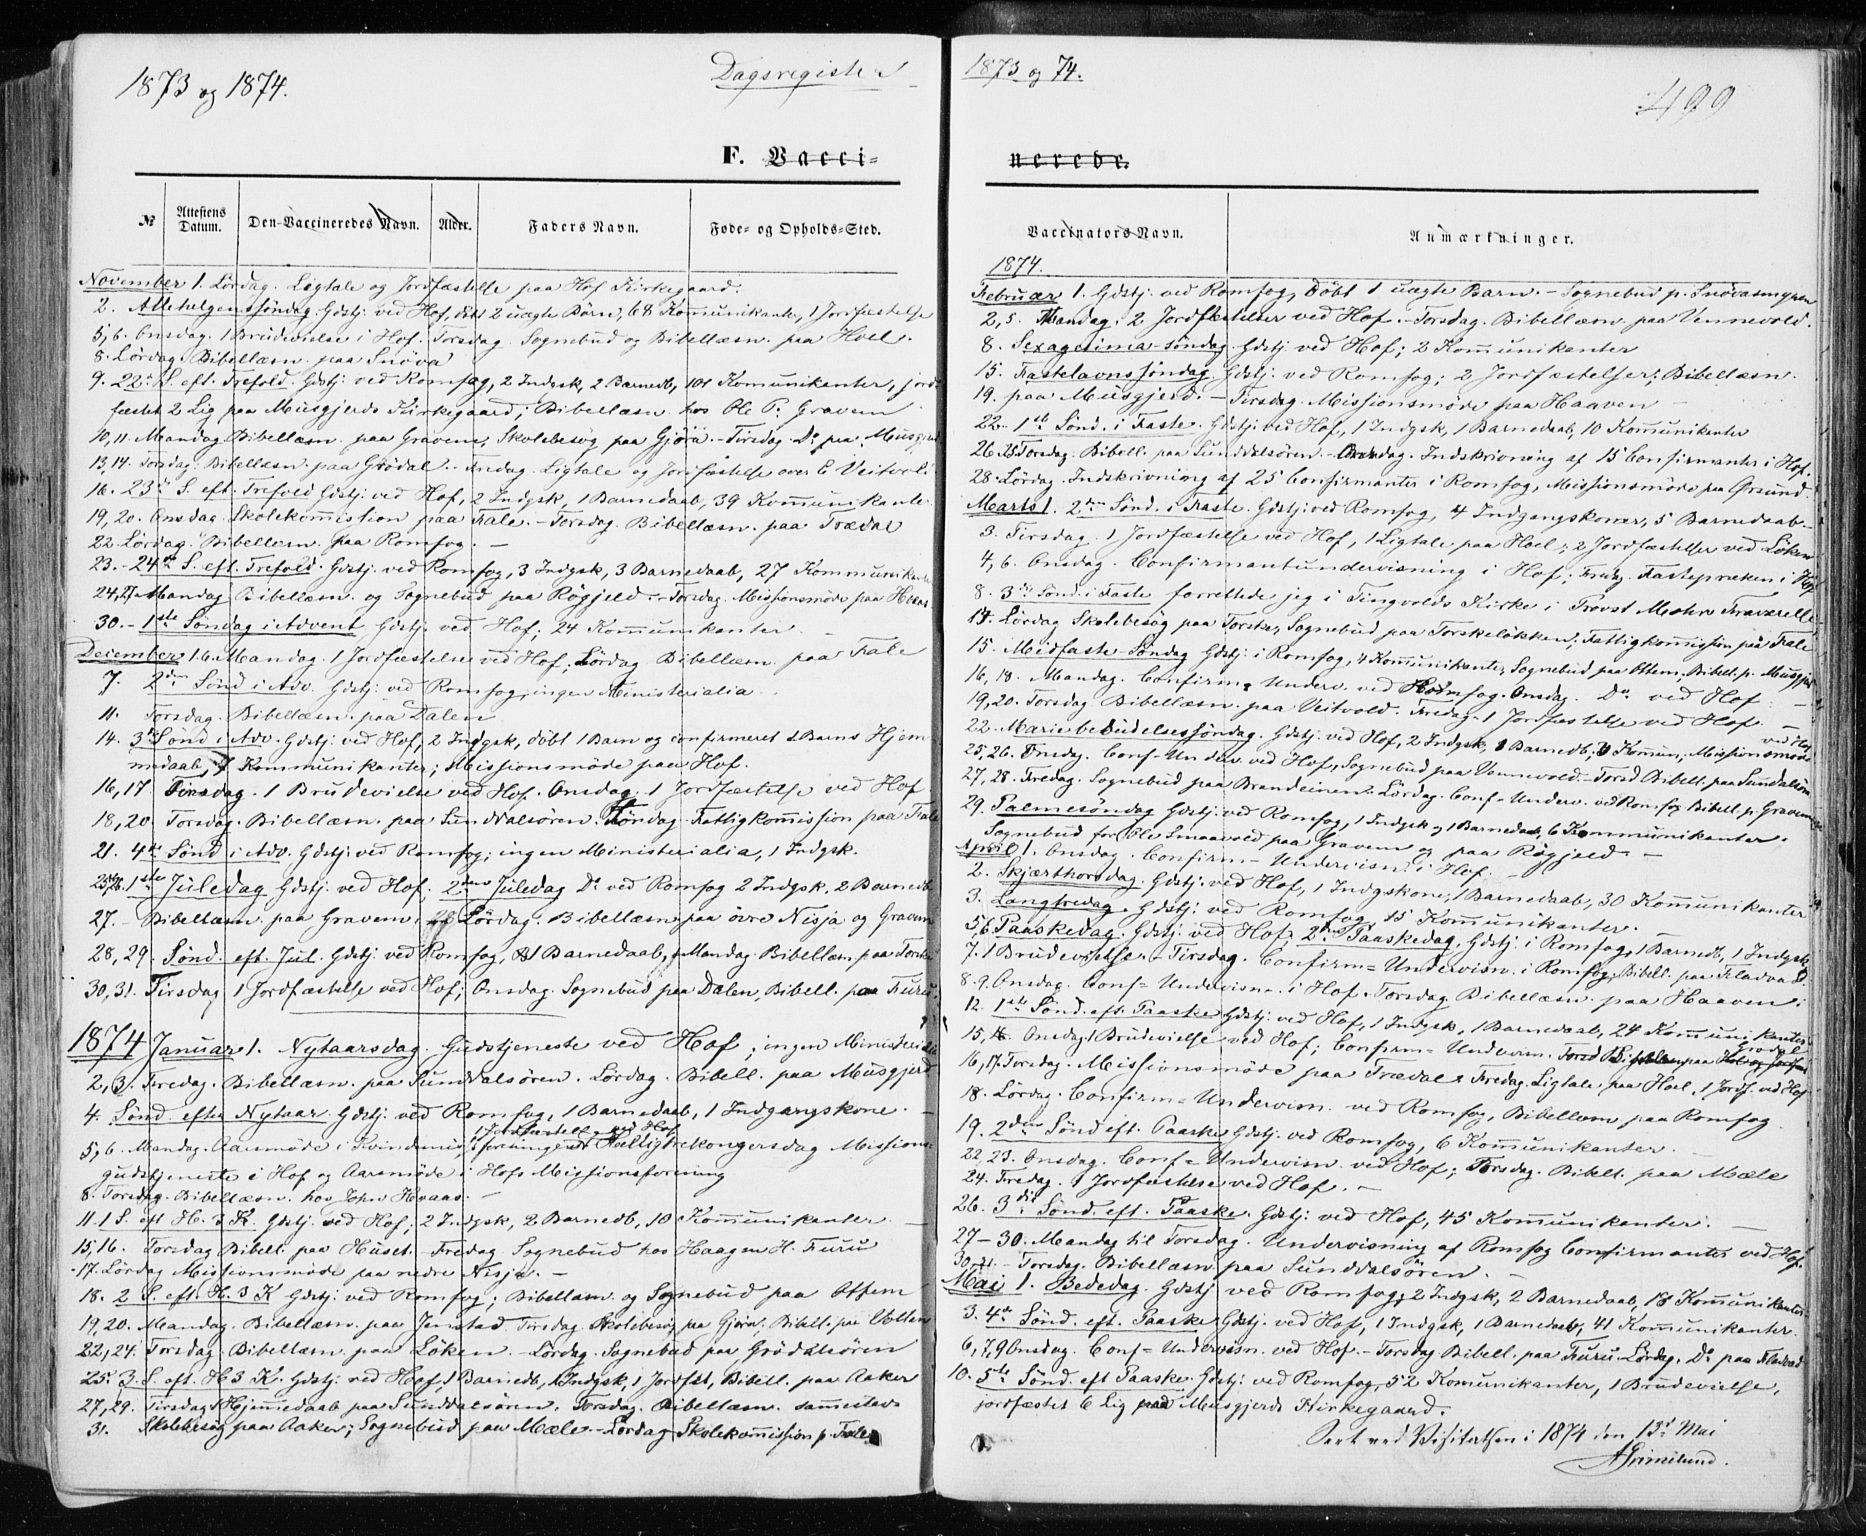 1873 og 1874.
Dagsregister
F. Vacci-
№
Attestens Datum.
Den Vaccineredes Navn.
Alder.
Faders Navn.
Føde- og Opholds-Sted.
November 1. Lördag. Ligtale og Jordfæstelse paa Hof Kirkegaard.
2. Allehelgenssöndag. Gdstj. ved Hof, döbt 2 uægte Börn, 68 Komunikanter, 1 Jordfæstelse
5, 6. Onsdag. 1 Brudevielse i Hof. Torsdag. Sognebud og Bibellæsn. paa Hoel.
8. Lördag. Bibellæsn. paa Snöva
9. 22de S. eft. Trefold. Gdstj. ved Romfog, 2 Indgsk, 2 Barnedb, 101 Komunikanter, jord-
fæstet 2 Lig paa Musgjerds Kirkegaard; Bibellæsn. hos Ole P. Gravem
10, 11. Mandag. Bibellæsn. paa Gravem; Skolebesög paa Gjöra. - Tirsdag. Do paa Musgjerd
13, 14. Torsdag. Bibellæsn. paa Grödal. - Fredag. Ligtale og Jordfæstelse over E Veitvol
16. 23de S. eft. Trefold Gdstj. ved Hof, 2 Indgsk, 1 Barnedaab, 39 Komunikante
19, 20. Onsdag. Skolekommission paa Fale. - Torsdag. Bibellæsn. paa Trædal
22. Lördag. Bibellæsn. paa Romfog. -
23. - 24de S. eft. Trefold. Gdstj. ved Romfog, 3 Indgsk, 3 Barnedaab, 27 Kommunikante
24, 27. Mandag Bibellæsn. og Sognebud paa Røgjeld. - Torsdag. Missionsmöde paa Hvaas
30. - 1ste Söndag i Advent Gdstj. ved Hof; 24 Komunikanter. -
December 1. 6. Mandag. 1 Jordfæstelse ved Hof; Lördag Bibellæsn. paa Fale
7. 2den Sönd i Adv. Gdstj. ved Romfog, ingen Ministerialia.
11. Torsdag. Bibellæsn. paa Dalen
14. 3de Sönd i Adv. Gdstj. ved Hof, 2 Indgsk, döbt 1 Barn og confirmeret 2 Barns Hjem-
medaab, 7 Kommunikanter; Missionsmöde paa Hof.
16, 17 Tirsdag. 1 Brudevielse ved Hof. Onsdag. 1 Jordfæstelse ved Hof
18, 20 Torsdag. Bibellæsn. paa Sunddalsören. Löndag Fattigkommission paa Fale
21. 4de Sönd i Adv. Gdstj. ved Romfog; ingen Ministerialia, 1 Indgsk.
25, 26. 1ste Juledag Gdstj. ved Hof. 2den Juledag Do ved Romfog 2 Indgsk, 2 Barnedb
27. - Bibellæsn. paa Gravem. Lördag. Bibellæsn. paa övre Nisja og Gravem
28, 29. Sönd. eft. Jul. Gdstj. ved Romfog, 1 Barnedaab, Mandag. Bibellæsn. paa Torske
30, 31. Tirsdag 1 Jordfæstelse ved Hof; Onsdag. Sognebud paa Dalen, Bibell. paa Furu.
1874 Januar 1. Nytaarsdag. Gudstjeneste ved Hof; ingen Ministerialia
2, 3. Fredag. Bibellæsn. paa Sunddalsören. Lördag. Bibell. paa Musgjerd
4. Sönd. efter Nytaar. Gdstj. ved Romfog, 1 Barnedaab, 1 Indgangskone. -
1 Jordfæstelse ved Hof
5, 6. Mandag. Aarsmöde i Kvindeforeningen. Helligtrekongersdag Missions-
gudstjeneste i Hof og Aarsmöde i Hofs Missionsforening
8. Torsdag. Bibellæsn. hos John Hvaas. -
11. 1 S. eft H. 3 K. Gdstj. ved Hof; 2 Indgsk, 2 Barnedb, 10 Komunikanter. -
15, 16. Torsdag Bibell. paa Huset. - Fredag Sognebud hos Haagen H. Furu
17. Lördag Missionsmöde paa nedre Nisja. -
18. 2 S. eft. H. 3 K Gdstj. ved Romfog; Bibellæsn. og Sognebud paa Ottem
19, 20. Mandag. Bibellæsn. paa Jenstad Tirsdag Skolebesög paa Gjöra, Bibell. paa Volten
22, 24. Torsdag Bibellæsn. paa Löken. - Lördag. Sognebud paa Grödalsören
25. 3. S. eft. H 3 K. Gdstj. ved Hof, 1 Barnedb, 1 Indgsk, 1 Jordfst, Bibell. paa Aaker
27, 29. Tirsdag 1 Hjemmedaab paa Sunddalsören. Torsdag. Bibellæsn. sammesteds
31. Skolebesög paa Aaker; Sognebud paa Mæle. - Lördag Skolekommission p. Fale
1873 og 74.
499
nerede.
Vaccinators Navn.
Anmærkninger.
1874.
Februar 1. Gdstj. ved Romfog, döbt 1 uægte Barn. - Sognebud p. Snövasmyren
2, 5. Mandag. 2 Jordfæstelser ved Hof. - Torsdag. Bibellæsn. paa Vennevold.
8. Sexagesima-söndag. Gdstj. ved Hof; 2 Komunikanter
15. Fastelavnssöndag. Gdstj. ved Romfog; 2 Jordfæstelser; Bibellæsn.
19. paa Musgjerd. - Tirsdag. Missionsmöde paa Haaven
22. 1ste Sönd. i Faste. Gdstj. ved Hof, 1 Indgsk, 1 Barnedaab, 10 Komunikanter
26. 25 Torsdag. Bibell. paa Sunddalsören. - Onsdag. Indskrivning af 15 Confirmanter i Hof.
28. Lördag. Indskrivning af 25 Confirmanter i Romfog, Missionsmöde paa Grsund
Marts 1. 2den Sönd. i Faste. Gdstj. ved Romfog, 4 Indgangskoner, 5 Barnedaab
3. Tirsdag. 1 Jordfæstelse ved Hof, 1 Ligtale paa Hoel; 2 Jordfæstelser ved Löken
4, 6. Onsdag. Confirmantundervisning i Hof; Fredag. Fasteprækèn i Hof
8. 3die Sönd. i Faste forrettede jeg i Tingvolds Kirke i Provst Mohrs Fraværelse
14. Lördag Skolebesög paa Torske, Sognebud paa Torskelökken; Fattigkomission paa Fale
15. Midfaste-Söndag Gdstj. i Romfog, 4 Komunikanter, Sognebud paa Ottem, Bibell. p. Musgjer
16, 18. Mandag. Confirm. Underv. ved Romfog. Onsdag. Do ved Hof
19, 20. Torsdag Bibellæsn. paa Veitvold. Fredag. 1 Jordfæstelse ved Hof. -
22. Mariæ bebudelsessöndag. Gdstj. ved Hof, 2 Indgsk, 1 Barnedb, Komun., Missionsmöde ved Hof
25, 26. Onsdag. Conf-Underv. ved Hof, Sognebud paa Vennevold. - Torsd Bibell. paa Sundalsören
27, 28. Fredag. Sognebud paa Brandeinen. Lördag. Conf-Underv. ved Romfog Bibell. p. Gravem
29. Palmesöndag Gdstj. ved Romfog, 1 Indgsk, 1 Barnedaab, 6 Kommunikanter.
Sognebud for Ole Smaavold paa Gravem og paa Røgjeld. -
April 1. Onsdag. Confirm-Undervisn. i Hof. -
2. Skjærthorsdag. Gdstj. ved Hof, 1 Indgskone, 1 Barnedaab, 30 Komunikanter
3. Langfredag. Gdstj. ved Romfog, 15 Komunikanter. -
5, 6 Paaskedag. Gdstj. ved Hof. 2den Paaskedag. Gdstj. i Romfog, 1 Barnedb, 1 Indgsk
7. 1 Brudevielse. - Tirsdag. Confirm-Undervisn. i Romfog. Bibell. paa Fladvad
8. 9. Onsdag. Conf-Undervisn. i Hof. Torsdag Bibellæsn. paa Haaven
12. 1ste Sönd. eft. Paaske Gdstj. ved Hof, 1 Indgsk, 1 Barnedaab, 24 Komunikanter
15, Onsdag 1 Brudevielse ved Hof; Confirm-Undervn. Torsd
16, 17. Torsdag. Missionsmöde paa Trædal. Fredag. Ligtale paa Hoel, 1 Jordf. ved Hof
18. Lördag. Confirm-Undervisn. ved Romfog, Bibellæsn paa Romfog
19. 2den Sönd eft. Paaske Gdstj. ved Romfog, 6 Komunikanter. -
22, 23. Onsdag. Conf-Undervisn. ved Hof; Torsdag. Bibell. paa Mæle
24. Fredag. 1 Jordfæstelse ved Hof. -
26. 3die Sönd. eft. Paaske. Gdstj. ved Hof, 45 Komunikanter. -
27-30. Mandag til Torsdag. Undervisning af Romfog Confirmanter ved Hof.
30. - Torsdag. Bibellæsn. paa Sunddalsören. -
Mai 1. Bededag. Gdstj. ved Romfog, 2 Indgsk, 2 Barnedaab, 18 Komunikanter
3. 4de Sönd. eft. Paaske Gdstj. ved Hof, 1 Indgsk, 1 Barnedaab, 41 Komunikanter.
6, 7, 9 Onsdag. Conf-Undervisn. ved Hof. - Torsdag Bibell. paa Furu. Lördag. Do paa Fladvad
10. 5te Sönd. eft Paaske. Gdstj. ved Romfog, 52 Komunikanter, 1 Brudevielse,
jordfæstet 6 Lig paa Musgjerds Kirkegaard.
Seet ved Visitatsen i 1874 den 13de Mai
AGrimelund.